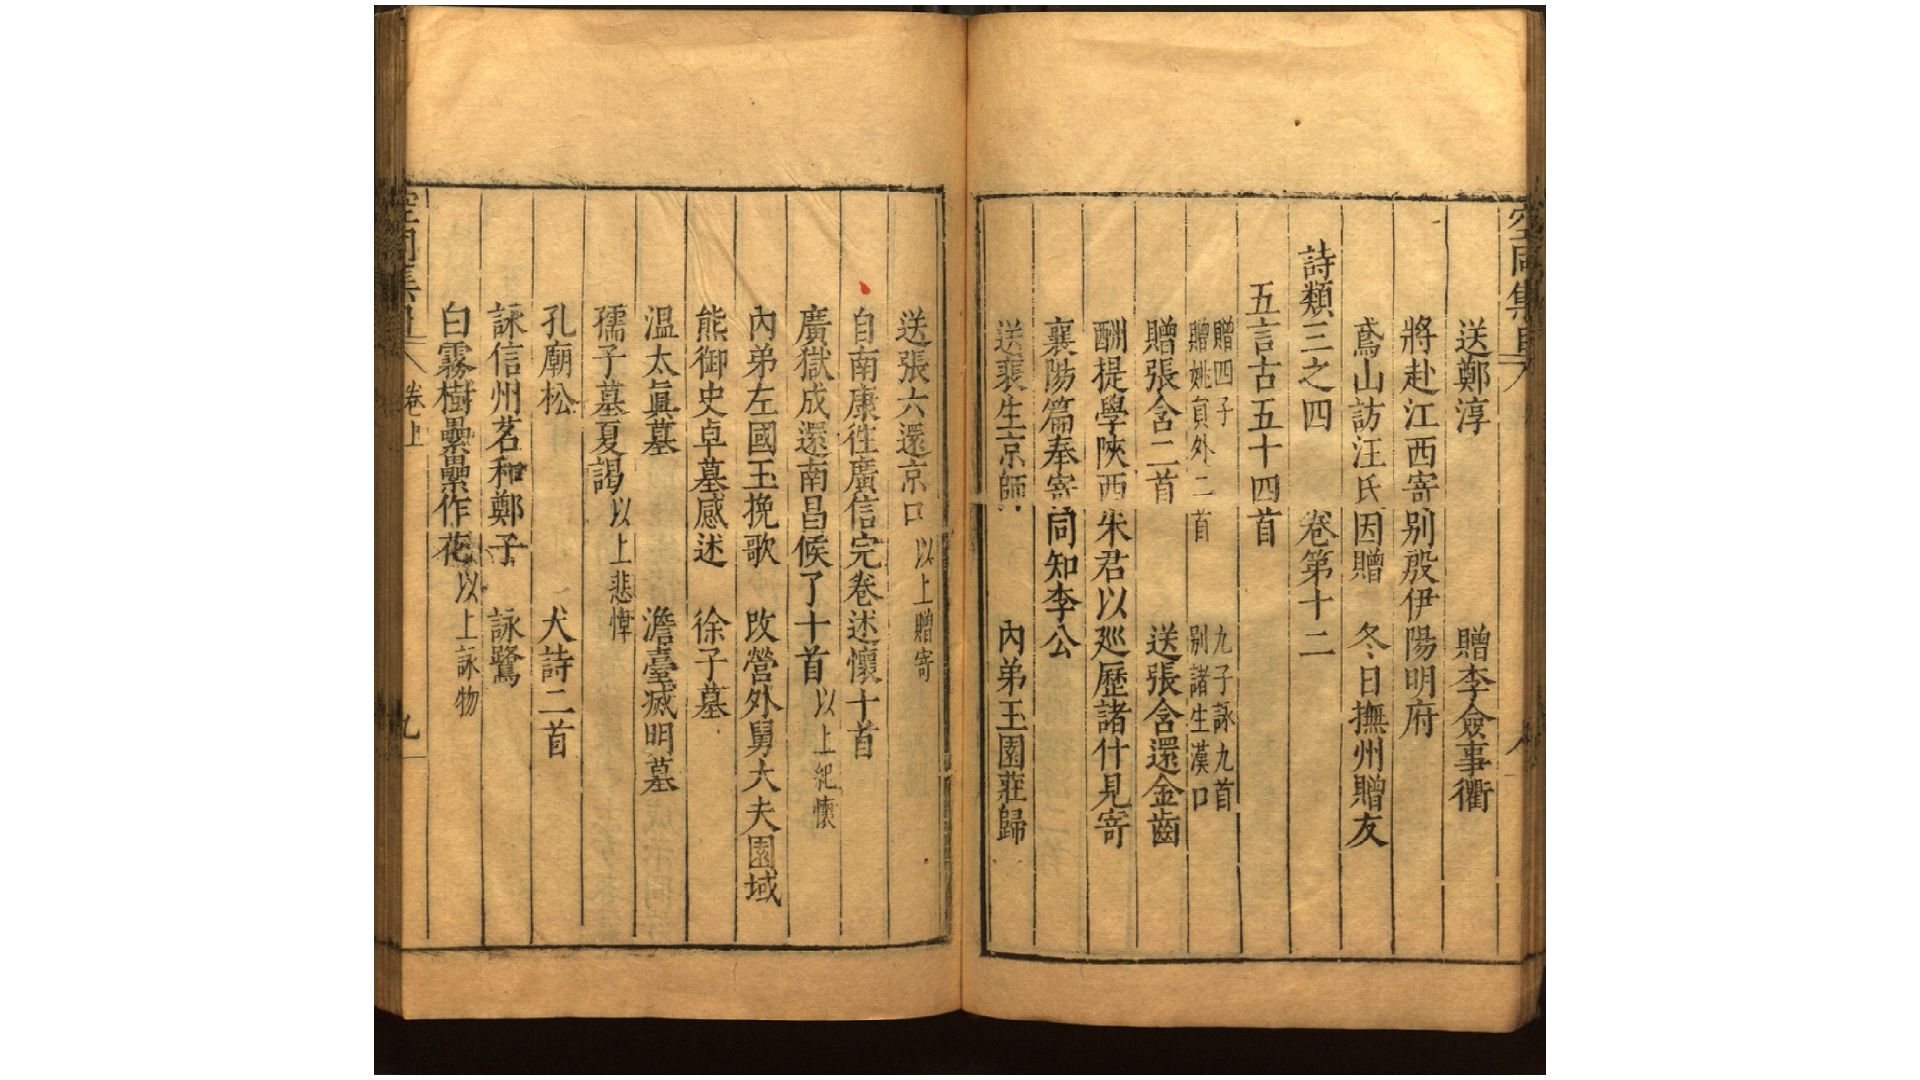 送鄭淳 贈李僉事衢
將赴江西寄别殷伊陽明府
鳶山訪汪氏因贈 冬日撫州贈友
詩類三之四 卷第十二
五言古五十四首
贈四子 九子詠九首
贈姚員外二首 别諸生漢口
贈張含二首 送張含還金齒
酬提學陜西朱君以廵歷諸什見寄
襄陽篇奉寄同知李公
送裴生京師 內弟玉園莊歸
送張六還京口 以上贈寄
自南康徃廣信完卷述懷十首
廣獄成還南昌候了十首 以上紀懷
內弟左國玉挽歌 改營外舅大夫園域
熊御史卓墓感述 徐子墓
溫太眞墓 澹臺滅明墓
孺子墓夏謁 以上悲悼
孔廟松 犬詩二首
詠信州茗和鄭子 詠鷺
白霧樹纍纍作花 以上詠物
空同集目 卷上 九